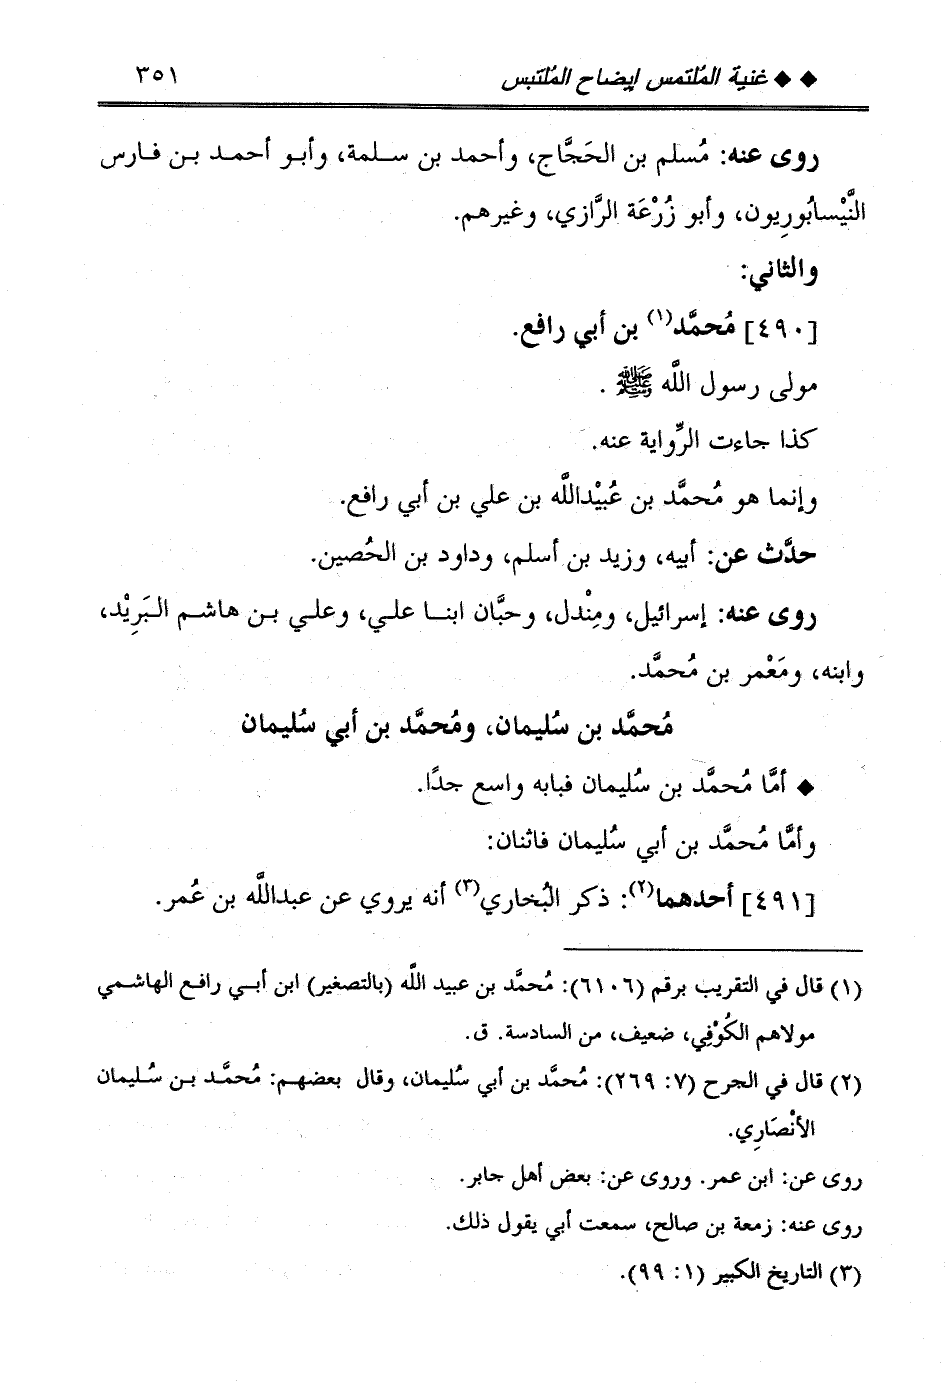 ◆ ◆ غنية المُلتمس إيضاح المُلتبس ٣٥١
روى عنه: مُسلم بن الحَجَّاج، وأحمد بن سلمة، وأبو أحمد بن فارس
النَّيْسابُورِيون، وأبو زُرْعَة الرَّازي، وغيرهم.
والثاني:
[٤٩٠] مُحمَّد(١) بن أبي رافع.
مولى رسول اللَّه ﷺ .
كذا جاءت الرِّواية عنه.
وإنما هو مُحمَّد بن عُبيْداللَّه بن علي بن أبي رافع.
حدَّث عن: أبيه، وزيد بن أسلم، وداود بن الحُصين.
روى عنه: إسرائيل، ومِنْدل، وحبَّان ابنا علي، وعلي بن هاشم البَرِيْد،
وابنه، ومَعْمر بن مُحمَّد.
مُحمَّد بن سُليمان، ومُحمَّد بن أبي سُليمان
◆ أمَّا مُحمَّد بن سُليمان فبابه واسع جدًا.
وأمَّا مُحمَّد بن أبي سُليمان فاثنان:
[٤٩١] أحدهما(٢): ذكر البُخاري(٣) أنه يروي عن عبداللَّه بن عُمر.
(١) قال في التقريب برقم (٦١٠٦): مُحمَّد بن عبيد اللَّه (بالتصغير) ابن أبي رافع الهاشمي
مولاهم الكُوْفِي، ضعيف، من السادسة. ق.
(٢) قال في الجرح (٧: ٢٦٩): مُحمَّد بن أبي سُليمان، وقال بعضهم: مُحمَّد بن سُليمان
الأنْصَارِي.
روى عن: ابن عمر. وروى عن: بعض أهل جابر.
روى عنه: زمعة بن صالح، سمعت أبي يقول ذلك.
(٣) التاريخ الكبير (١: ٩٩).